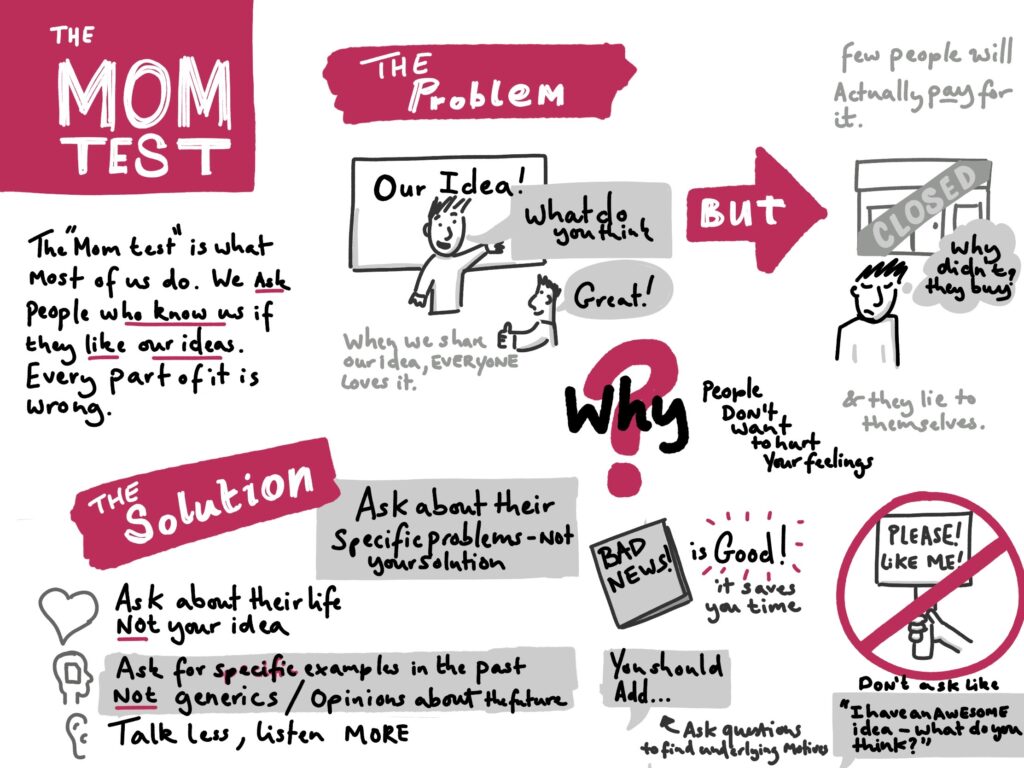 THE
MOM
TEST
The "Mom test" is what
most of us do. We Ask
people who know us if
they like our ideas.
Every part of it is
wrong.
THE
Problem
Our Idea!
What do
you think
Great!
When we share
our idea, EVERYONE
loves it.
BUT
few people will
Actually pay for
it.
CLOSED
Why
didn't
they buy?
& they lie to
themselves.
Why
?
People
Don't
want
to hurt
Your feelings
THE
Solution
Ask about their
Specific problems - Not
your solution
Ask about their life
NOT your idea
Ask for specific examples in the past
NOT generics / Opinions about the future
Talk less, listen MORE
BAD
NEWS!
is Good!
it saves
you time
You should
Add...
Ask questions
to find underlying Motives
PLEASE!
LIKE ME!
Don't ask like
"I have an AWESOME
idea - what do you
think?"